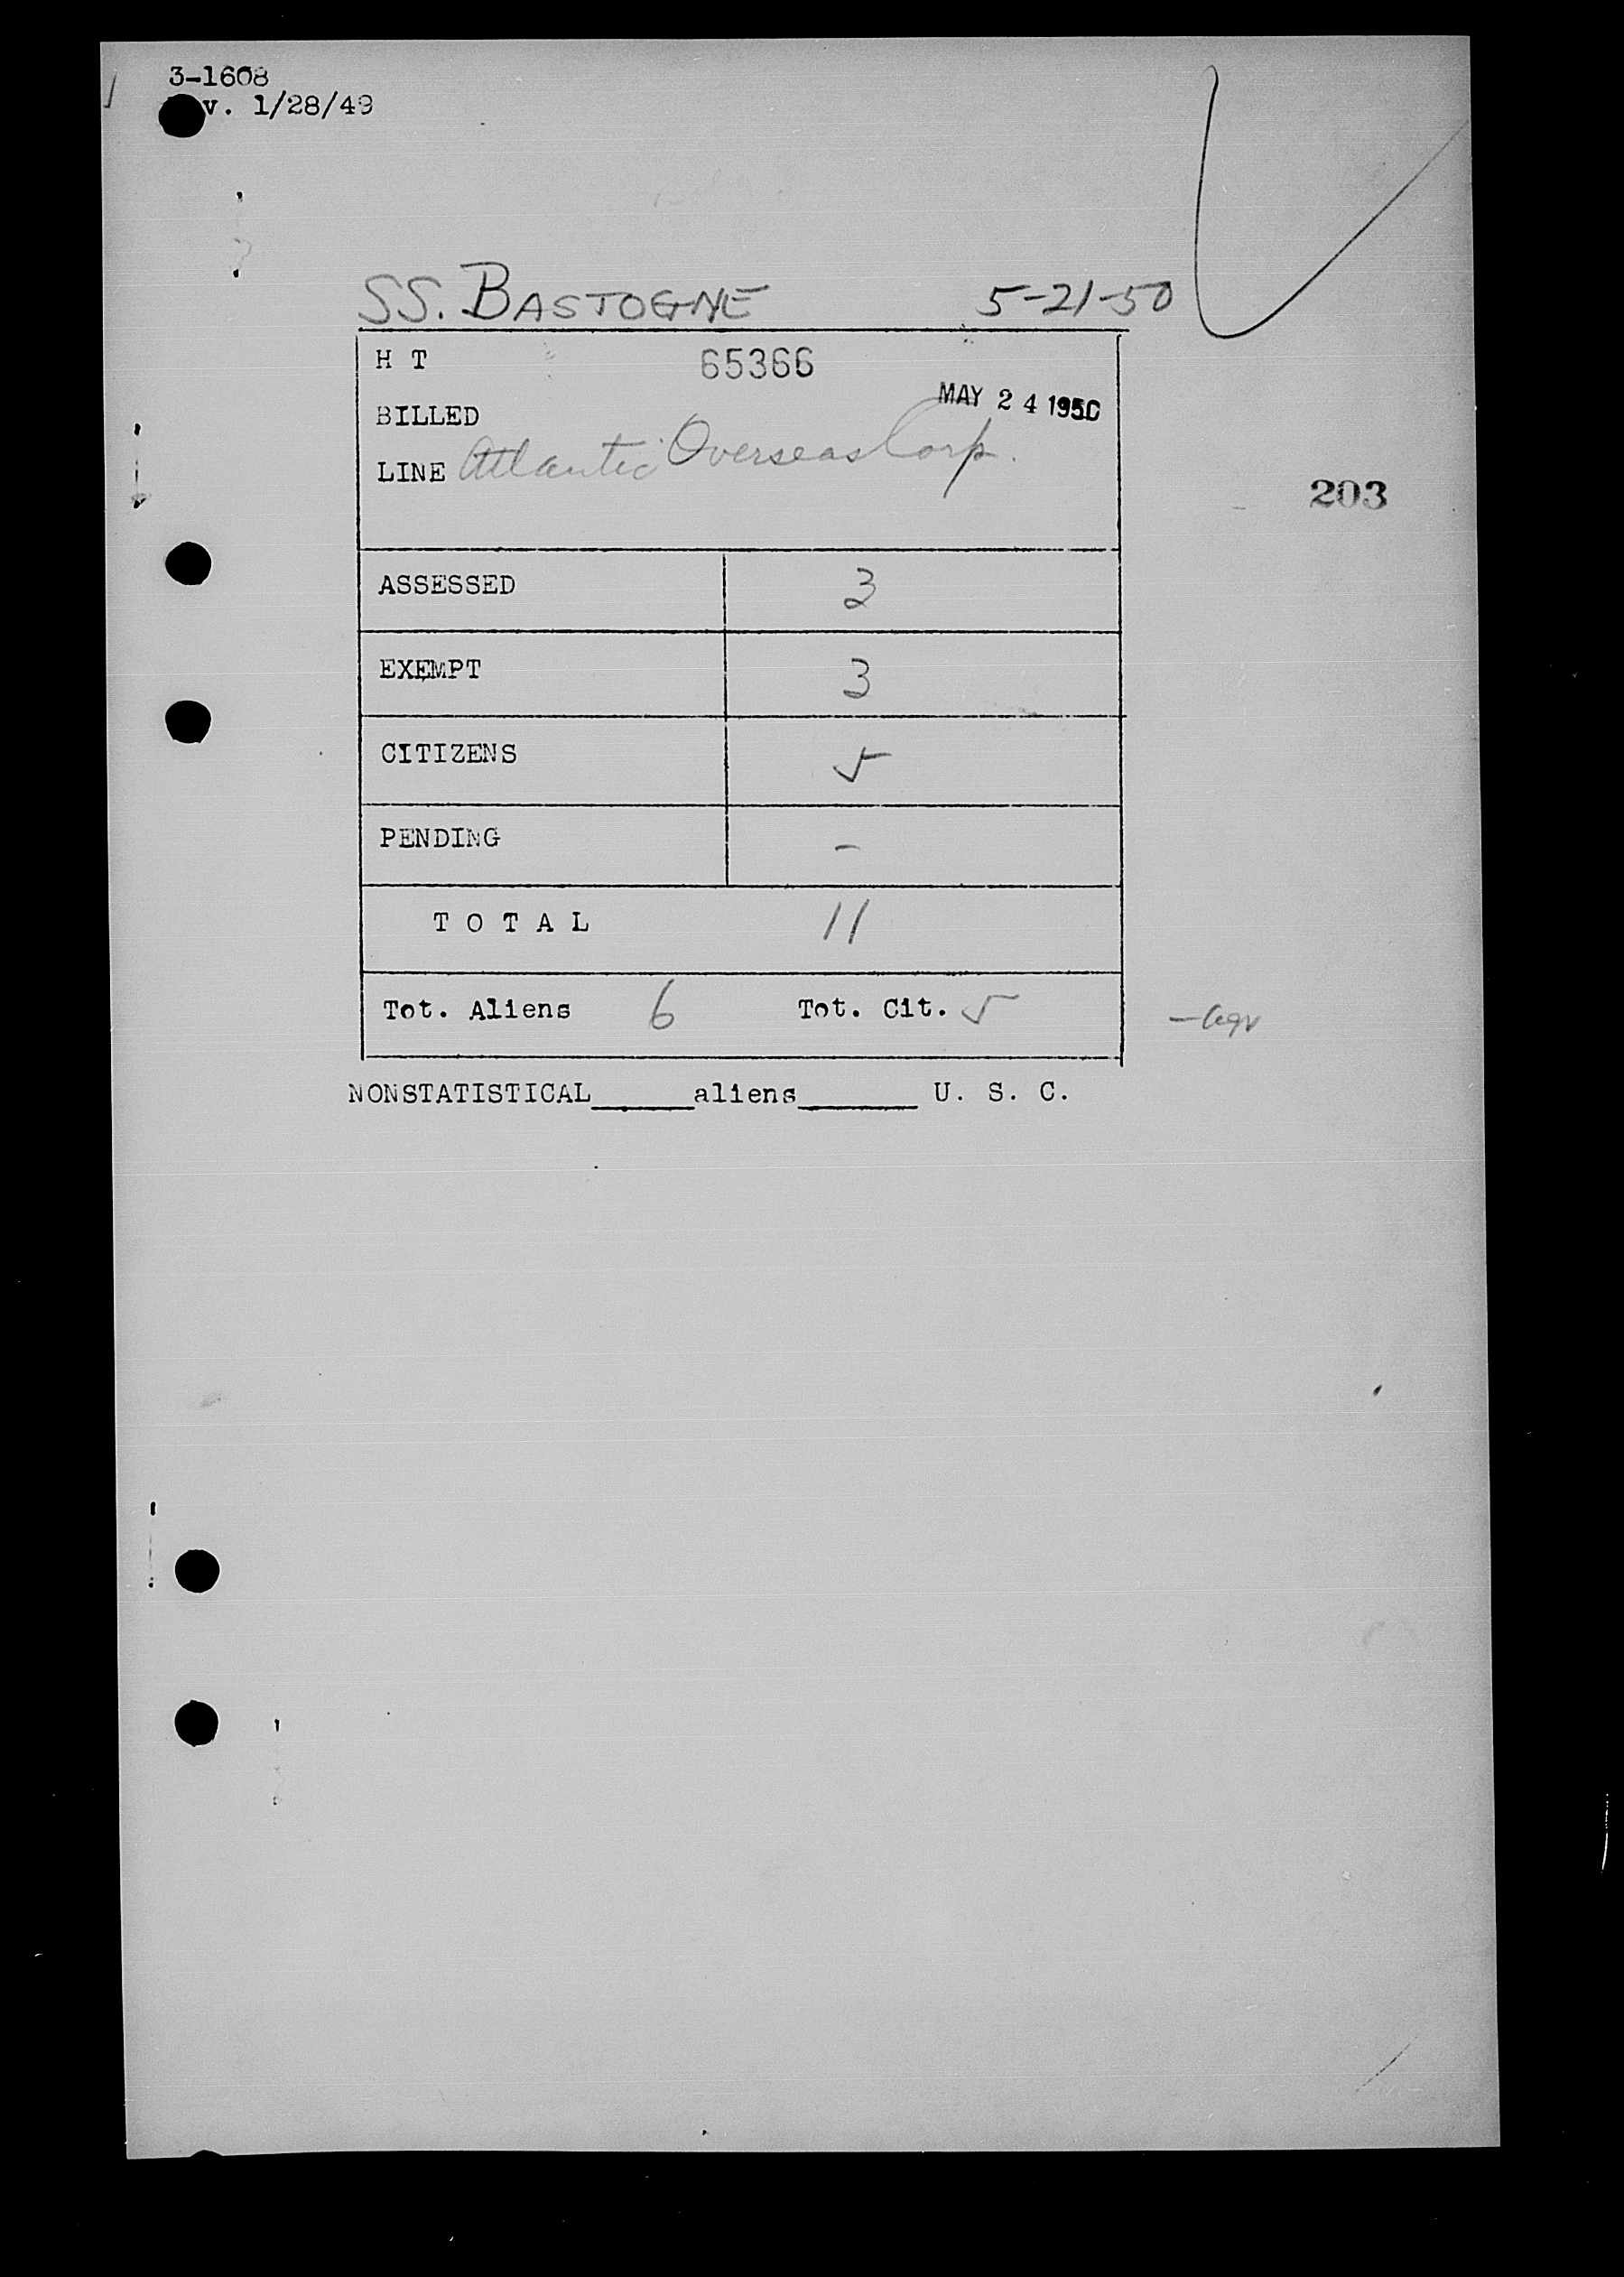 3-1608
v. 1/28/49
SS. BASTOGNE 5-21-50
H T 65366
BILLED MAY 24 1950
LINE Atlantic Overseas Corp.
203
ASSESSED 3
EXEMPT 3
CITIZENS 5
PENDING -
TOTAL 11
Tot. Aliens 6 Tot. Cit. 5
NONSTATISTICAL_____aliens______ U. S. C.